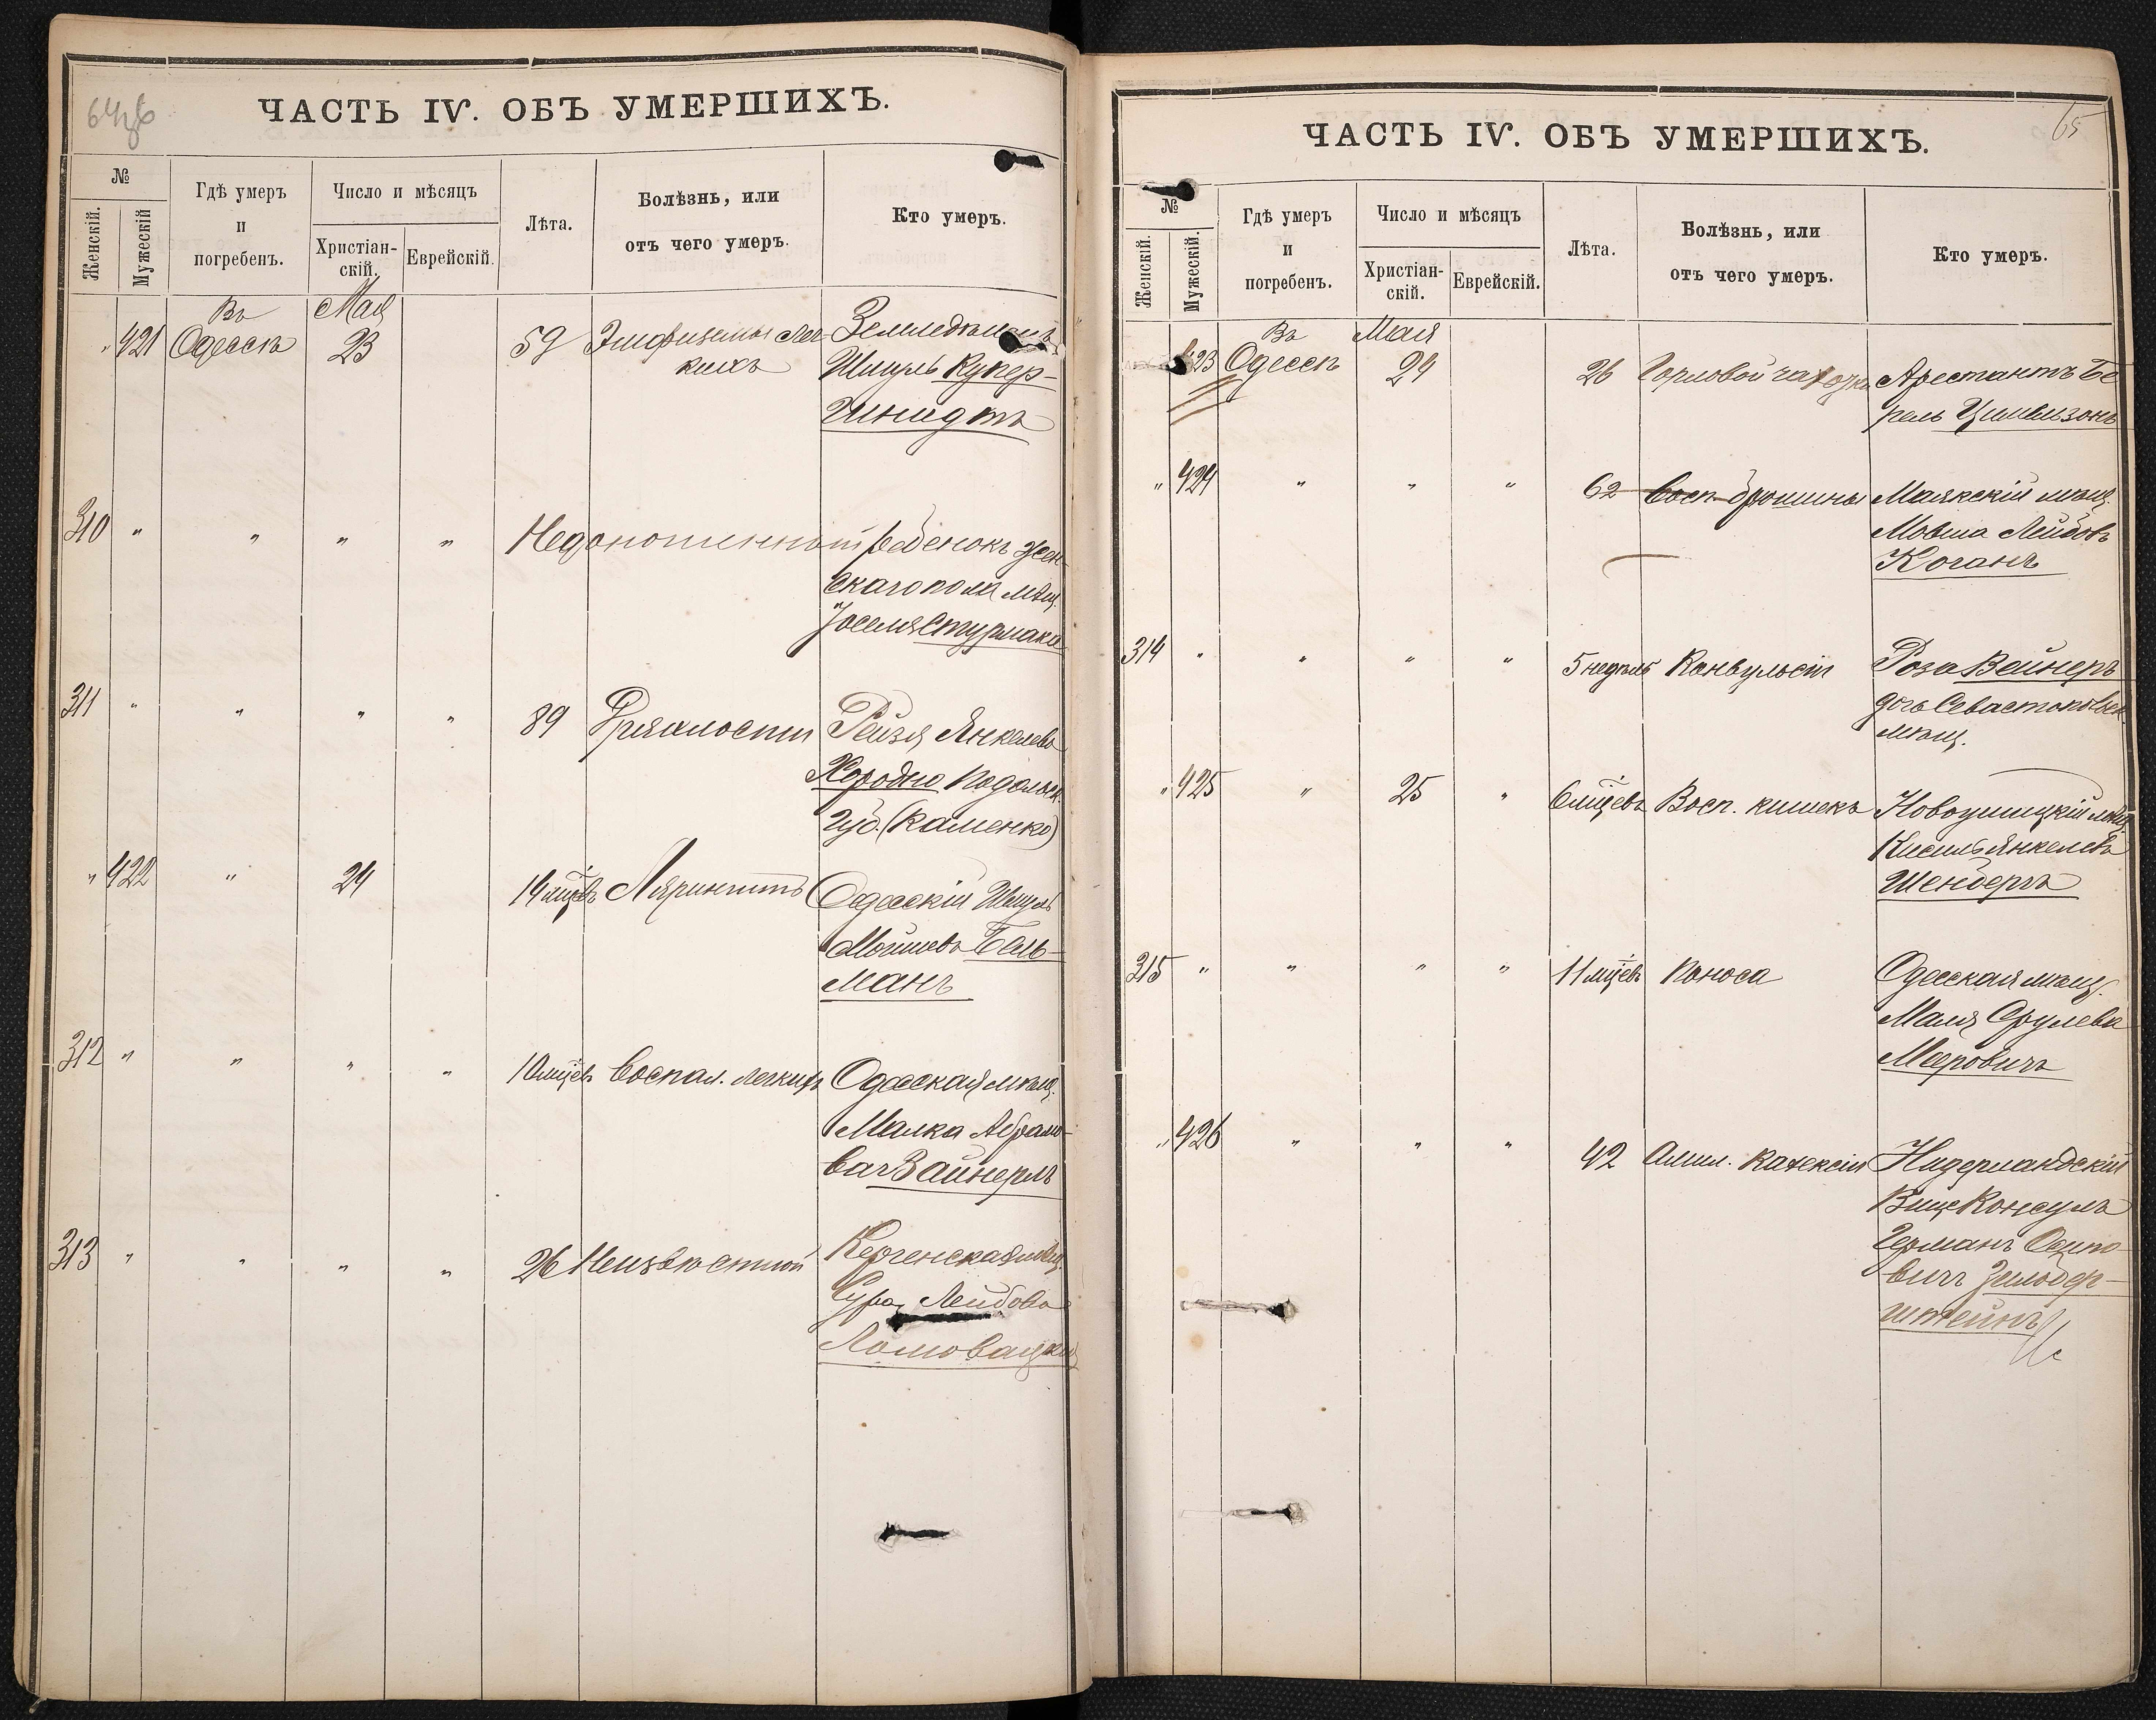 ЧАСТЬ IV. ОБЪ УМЕРШИХЪ.
№
Женскій.
Мужескій
Гдѣ умеръ
и
погребенъ.
Число и мѣсяцъ
Христіан-
скій.
Еврейскій.
Лѣта.
Болѣзнь, или
отъ чего умеръ.
Кто умеръ.
„ 421 Въ Одессѣ Мая 23 59 Эмфиземы лег- Земледѣлецъ
кихъ Шмуль Купер-
шмидтъ
310 „ „ „ „ Недоношенный ребенокъ жен-
скаго пола мѣщ.
Іоселя Стурмака
311 „ „ „ „ 89 Дряхлости Рейзя Янкелева
Хородно Подольск.
Губ. (Каменко)
„ 422 „ 24 14 мцевъ Ларингитъ Одесскій Шмуль
Мошковъ Бель-
манъ
312 „ „ „ „ 10 мцевъ Воспал. легкихъ Одесская мѣщ.
Малка Абрамо-
ва Вайнеръ
313 „ „ „ „ 26 Неизвѣстной Керченская мѣщ.
Сура Лейбова
Ломовацкая
ЧАСТЬ IV. ОБЪ УМЕРШИХЪ.
65
№
Женскій.
Мужескій.
Гдѣ умеръ
и
погребенъ.
Число и мѣсяцъ
Христіан-
скій.
Еврейскій.
Лѣта.
Болѣзнь, или
отъ чего умеръ.
Кто умеръ.
423 Въ Одессѣ Мая 24 26 Горловой чахотки Арестантъ Бе-
рель Цимельзонъ
„ 424 „ „ „ 62 Восп. брюшины Маякскій мѣщ.
Мовша Лейбовъ
Коганъ
314 „ „ „ „ 5 недѣль Конвульсіи Роза Вейнеръ
дочь Севастопольск.
мѣщ.
„ 425 „ 25 „ 6 мцевъ Восп. кишекъ Новоушицкій мѣщ.
Кисиль Янкелевъ
Шенбергъ
315 „ „ „ „ 11 мцевъ Поноса Одесская мѣщ.
Маля Срулева
Мееровичъ
„ 426 „ „ „ 42 Амил. кахексіи Нидерландскій
Вице Консулъ
Германъ Осипо-
вичъ Зильбер-
штейнъ